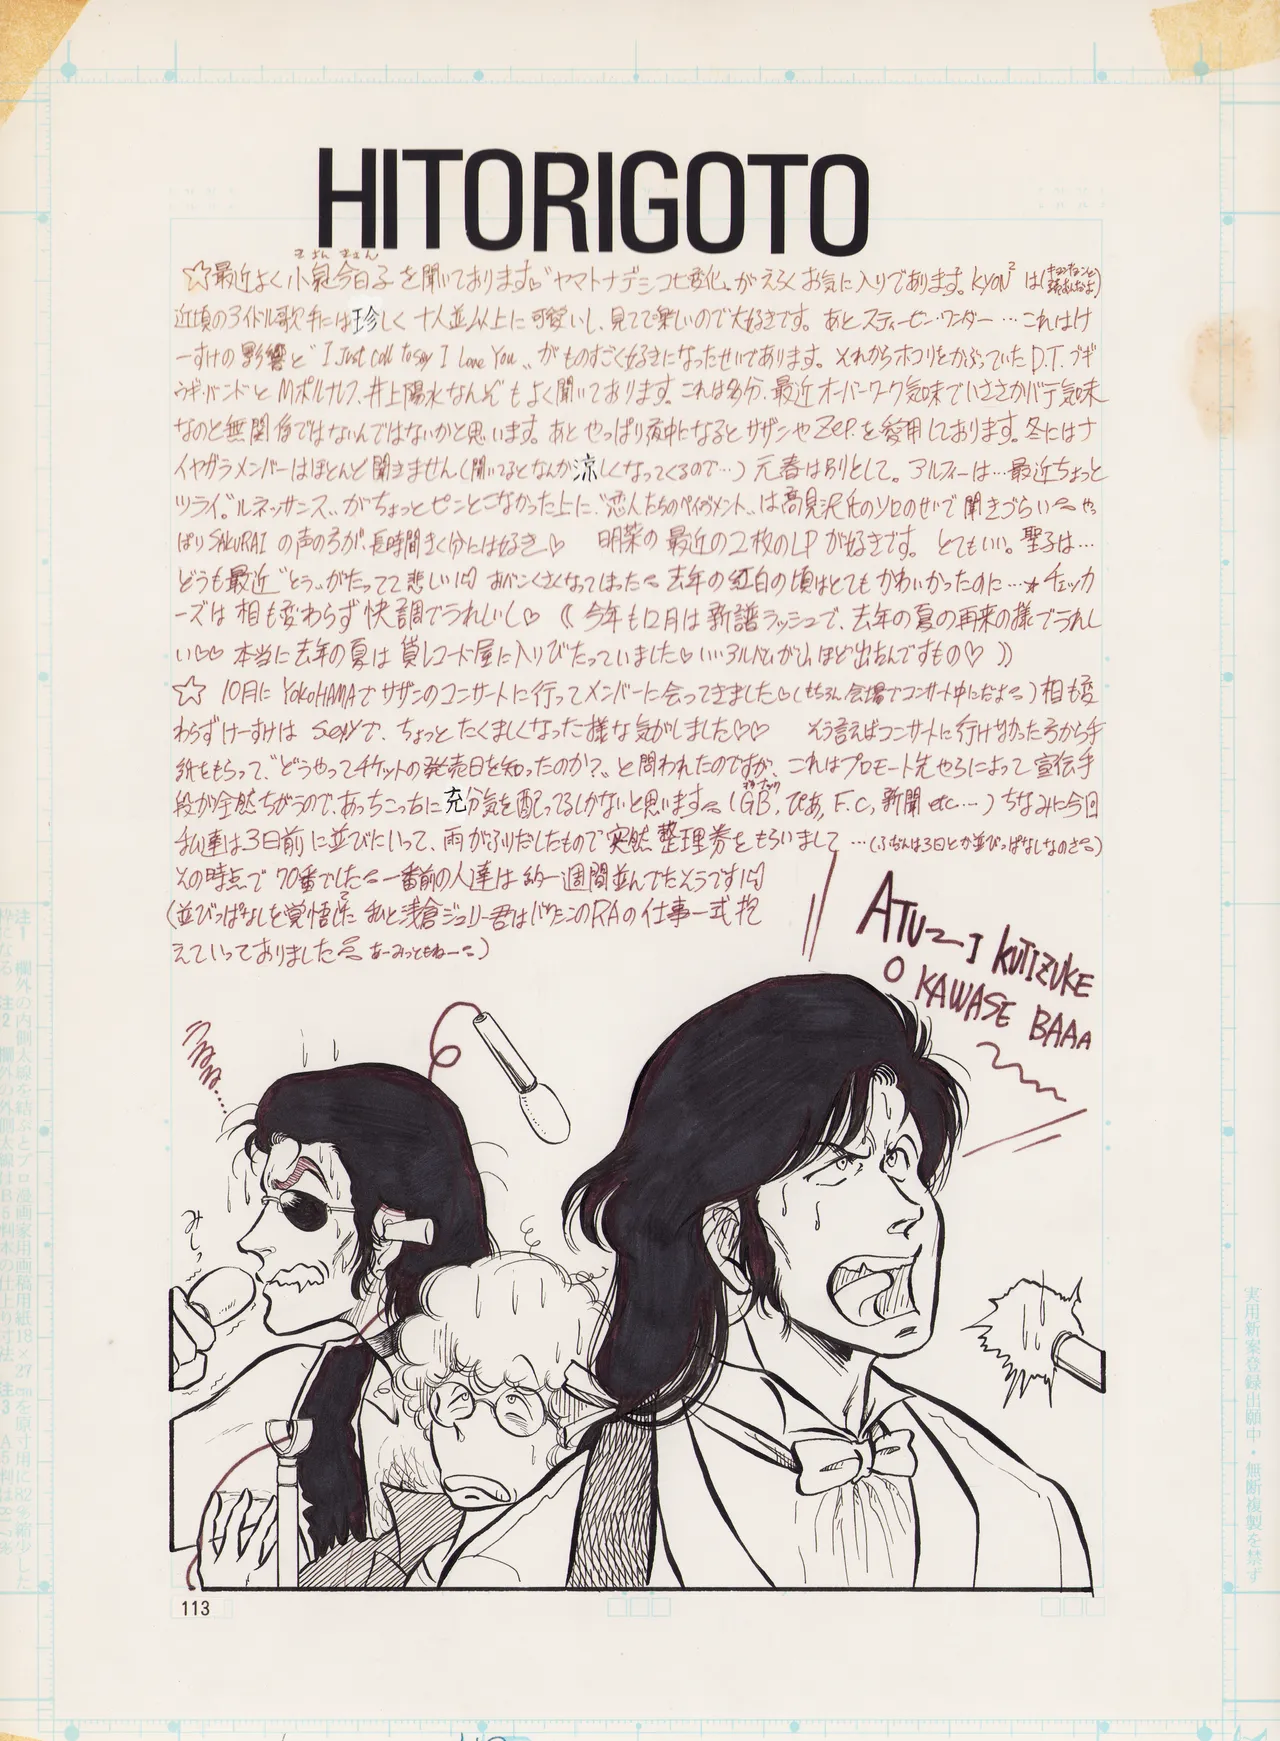 HITORIGOTO
きょん きょん
☆最近よく小泉今日子を聞いております♡“ヤマトナデシコ七変化〟がえらくお気に入りであります。KYON² は
近頃のアイドル歌手には珍しく十人並以上に可愛いし、見てて楽しいので大好きです。あとスティービー・ワンダー…これはけ
ーすけの影響と“I Just Call to Say I Love You〟がものすごく好きになったせいであります。それからホコリをかぶっていたD.T.ブギ
ウギ・バンドとMポルナレフ、井上陽水なんぞもよく聞いております。これは多分、最近オーバーワーク気味でいささかバテ気味
なのと無関係ではないんではないかと思います。あとやっぱり夜中になるとサザンやZEP.を愛用しております。冬にはナ
イヤガラメンバーはほとんど聞きません(聞いてるとなんか涼しくなってくるので…)元春は別として。アルフィーは…最近ちょっと
ツライ。“ルネッサンス〟がちょっとピンとこなかった上に、“恋人たちのペイヴメント〟は高見沢氏のソロのせいで聞きづらい〜やっ
ぱりSAKURAIの声の方が、長時間きく分には好き♡ 明菜の最近の2枚のLPが好きです。とてもいい。聖子は…
どうも最近“とう〟がたってて悲しい おばんくさくなってしまった〜去年の紅白の頃はとてもかわいかったのに…★チェッカ
ーズは相も変わらず快調でうれしいし♡((今年も12月は新譜ラッシュで、去年の夏の再来の様でうれし
い♡♡本当に去年の夏は貸レコード屋に入りびたっていました♡いいアルバムが山ほど出たんですもの♡))
☆10月にYOKOHAMAでサザンのコンサートに行ってメンバーに会ってきました♡(もちろん会場でコンサート中にだよ〜)相も変
わらずけーすけはSexyで、ちょっとたくましくなった様な気がしました♡♡ そう言えばコンサートに行けなかった方から手
紙をもらって、“どうやってチケットの発売日を知ったのか?〟と問われたのですが、これはプロモート先やらによって宣伝手
段が全然ちがうので、あっちこっちに充分気を配ってるしかないと思います〜(GB、ぴあ、F.C、新聞etc…)ちなみに今回
私達は3日前に並びにいって、雨がふりだしたもので突然整理券をもらいまして…(ふだんは3日とか並びっぱなしなのさ〜)
その時点で70番でした〜一番前の人達は約一週間並んでたそうです
(並びっぱなしを覚悟した私と浅倉ジュリー君はバケツンのRAの仕事一式抱
えていっておりました〜あーみっともねー〜)
ATU-I KUTIZUKE
O KAWASE BAAA
うるうる…
みしっ
113
実用新案登録出願中・無断複製を禁ず